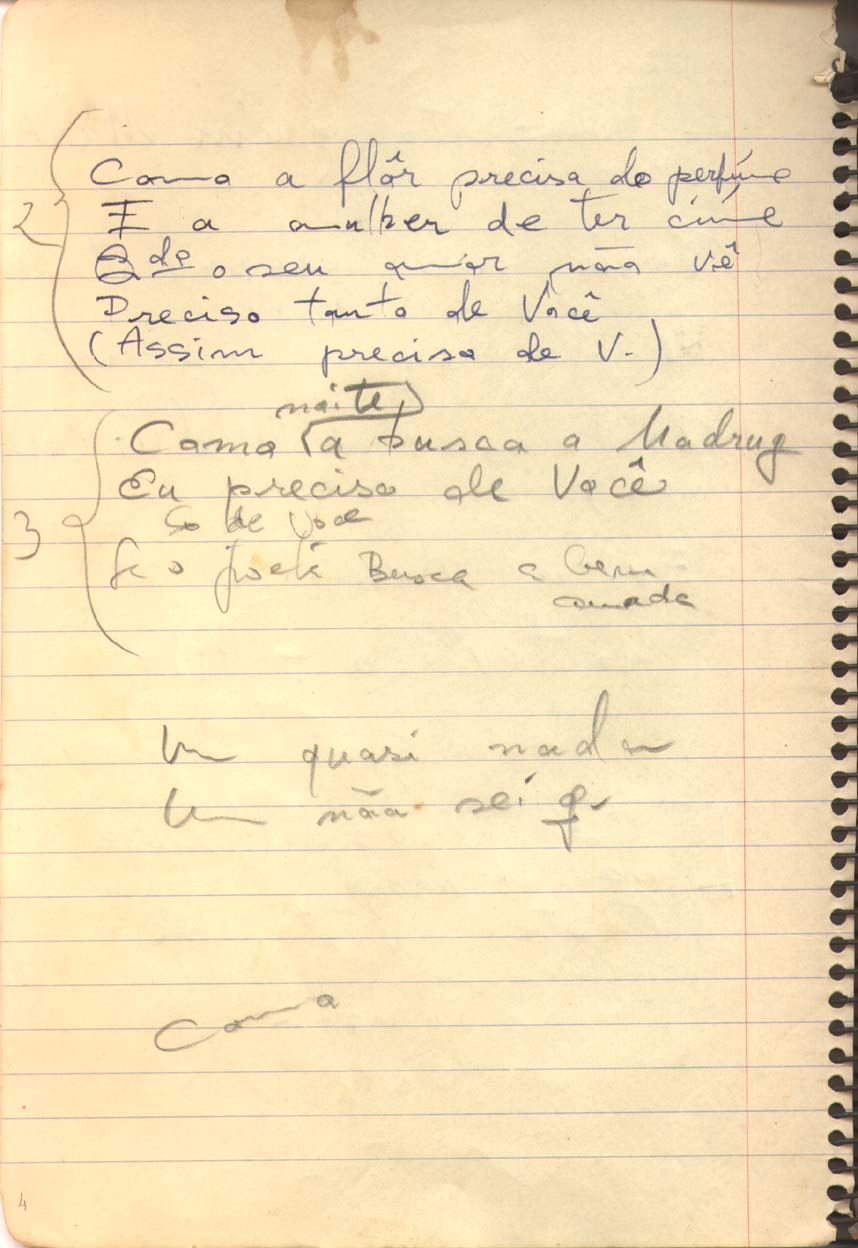 2
Como a flôr precisa do perfúme
E a mulher de ter ciúme
Qdo o seu amor não vê
Preciso tanto de Você
(Assim preciso de V.)
noite
3
Como a busca a Madrug
Eu preciso de Você
So de Voce
Se o poeta Busca a bem
amada
Um quasi nada
Um não sei q.
Como
4